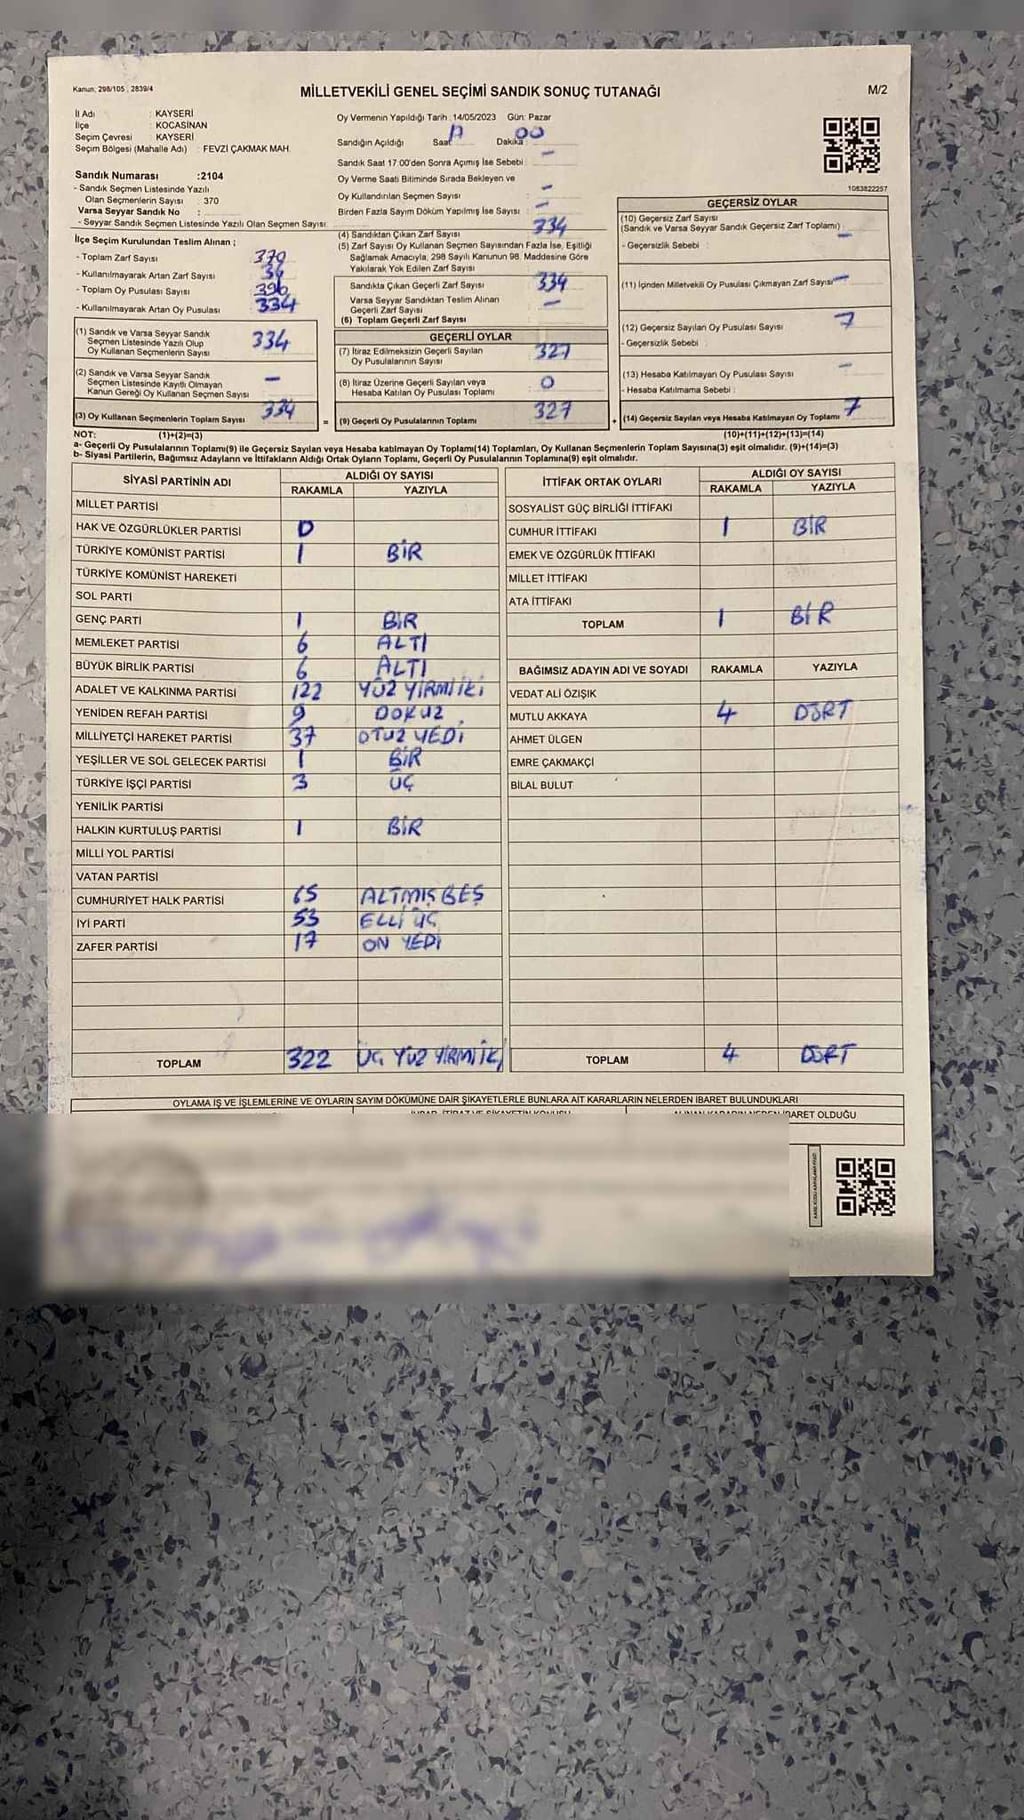 Kanun: 298/105 , 2839/4
MİLLETVEKİLİ GENEL SEÇİMİ SANDIK SONUÇ TUTANAĞI
M/2
İl Adı : KAYSERİ
İlçe : KOCASİNAN
Seçim Çevresi : KAYSERİ
Seçim Bölgesi (Mahalle Adı) : FEVZİ ÇAKMAK MAH.
Sandık Numarası :2104
- Sandık Seçmen Listesinde Yazılı
Olan Seçmenlerin Sayısı : 370
Varsa Seyyar Sandık No :
- Seyyar Sandık Seçmen Listesinde Yazılı Olan Seçmen Sayısı :
İlçe Seçim Kurulundan Teslim Alınan ;
- Toplam Zarf Sayısı 370
- Kullanılmayarak Artan Zarf Sayısı
- Toplam Oy Pusulası Sayısı
- Kullanılmayarak Artan Oy Pusulası 334
(1) Sandık ve Varsa Seyyar Sandık
Seçmen Listesinde Yazılı Olup
Oy Kullanan Seçmenlerin Sayısı 334
(2) Sandık ve Varsa Seyyar Sandık
Seçmen Listesinde Kayıtlı Olmayan
Kanun Gereği Oy Kullanan Seçmen Sayısı -
(3) Oy Kullanan Seçmenlerin Toplam Sayısı 334
Oy Vermenin Yapıldığı Tarih :14/05/2023 Gün: Pazar
Sandığın Açıldığı Saat 17 Dakika 00
Sandık Saat 17:00'den Sonra Açımış İse Sebebi : -
Oy Verme Saati Bitiminde Sırada Bekleyen ve
Oy Kullandırılan Seçmen Sayısı -
Birden Fazla Sayım Döküm Yapılmış İse Sayısı : -
(4) Sandıktan Çıkan Zarf Sayısı 334
(5) Zarf Sayısı Oy Kullanan Seçmen Sayısından Fazla İse, Eşitliği
Sağlamak Amacıyla, 298 Sayılı Kanunun 98. Maddesine Göre
Yakılarak Yok Edilen Zarf Sayısı
Sandıkta Çıkan Geçerli Zarf Sayısı 334
Varsa Seyyar Sandıktan Teslim Alınan
Geçerli Zarf Sayısı -
(6) Toplam Geçerli Zarf Sayısı
GEÇERLİ OYLAR
(7) İtiraz Edilmeksizin Geçerli Sayılan
Oy Pusulalarının Sayısı 327
(8) İtiraz Üzerine Geçerli Sayılan veya
Hesaba Katılan Oy Pusulası Toplamı 0
= (9) Geçerli Oy Pusulalarının Toplamı 327
1083822257
GEÇERSİZ OYLAR
(10) Geçersiz Zarf Sayısı
(Sandık ve Varsa Seyyar Sandık Geçersiz Zarf Toplamı) : -
- Geçersizlik Sebebi :
(11) İçinden Milletvekili Oy Pusulası Çıkmayan Zarf Sayısı -
(12) Geçersiz Sayılan Oy Pusulası Sayısı 7
- Geçersizlik Sebebi :
(13) Hesaba Katılmayan Oy Pusulası Sayısı -
- Hesaba Katılmama Sebebi :
+ (14) Geçersiz Sayılan veya Hesaba Katılmayan Oy Toplamı 7
NOT: (1)+(2)=(3) (10)+(11)+(12)+(13)=(14)
a- Geçerli Oy Pusulalarının Toplamı(9) ile Geçersiz Sayılan veya Hesaba katılmayan Oy Toplamı(14) Toplamları, Oy Kullanan Seçmenlerin Toplam Sayısına(3) eşit olmalıdır. (9)+(14)=(3)
b- Siyasi Partilerin, Bağımsız Adayların ve İttifakların Aldığı Ortak Oyların Toplamı, Geçerli Oy Pusulalarının Toplamına(9) eşit olmalıdır.
SİYASİ PARTİNİN ADI ALDIĞI OY SAYISI
RAKAMLA YAZIYLA
MİLLET PARTİSİ
HAK VE ÖZGÜRLÜKLER PARTİSİ 0
TÜRKİYE KOMÜNİST PARTİSİ 1 BİR
TÜRKİYE KOMÜNİST HAREKETİ
SOL PARTİ
GENÇ PARTİ 1 BİR
MEMLEKET PARTİSİ 6 ALTI
BÜYÜK BİRLİK PARTİSİ 6 ALTI
ADALET VE KALKINMA PARTİSİ 122 YÜZ YİRMİ İKİ
YENİDEN REFAH PARTİSİ 9 DOKUZ
MİLLİYETÇİ HAREKET PARTİSİ 37 OTUZ YEDİ
YEŞİLLER VE SOL GELECEK PARTİSİ 1 BİR
TÜRKİYE İŞÇİ PARTİSİ 3 ÜÇ
YENİLİK PARTİSİ
HALKIN KURTULUŞ PARTİSİ 1 BİR
MİLLİ YOL PARTİSİ
VATAN PARTİSİ
CUMHURİYET HALK PARTİSİ 65 ALTMIŞ BEŞ
İYİ PARTİ 53 ELLİ ÜÇ
ZAFER PARTİSİ 17 ON YEDİ
TOPLAM 322 ÜÇ YÜZ YİRMİ İKİ
İTTİFAK ORTAK OYLARI ALDIĞI OY SAYISI
RAKAMLA YAZIYLA
SOSYALİST GÜÇ BİRLİĞİ İTTİFAKI
CUMHUR İTTİFAKI 1 BİR
EMEK VE ÖZGÜRLÜK İTTİFAKI
MİLLET İTTİFAKI
ATA İTTİFAKI
TOPLAM 1 BİR
BAĞIMSIZ ADAYIN ADI VE SOYADI RAKAMLA YAZIYLA
VEDAT ALİ ÖZIŞIK
MUTLU AKKAYA 4 DÖRT
AHMET ÜLGEN
EMRE ÇAKMAKÇİ
BİLAL BULUT
TOPLAM 4 DÖRT
OYLAMA İŞ VE İŞLEMLERİNE VE OYLARIN SAYIM DÖKÜMÜNE DAİR ŞİKAYETLERLE BUNLARA AİT KARARLARIN NELERDEN İBARET BULUNDUKLARI
İBARET OLDUĞU